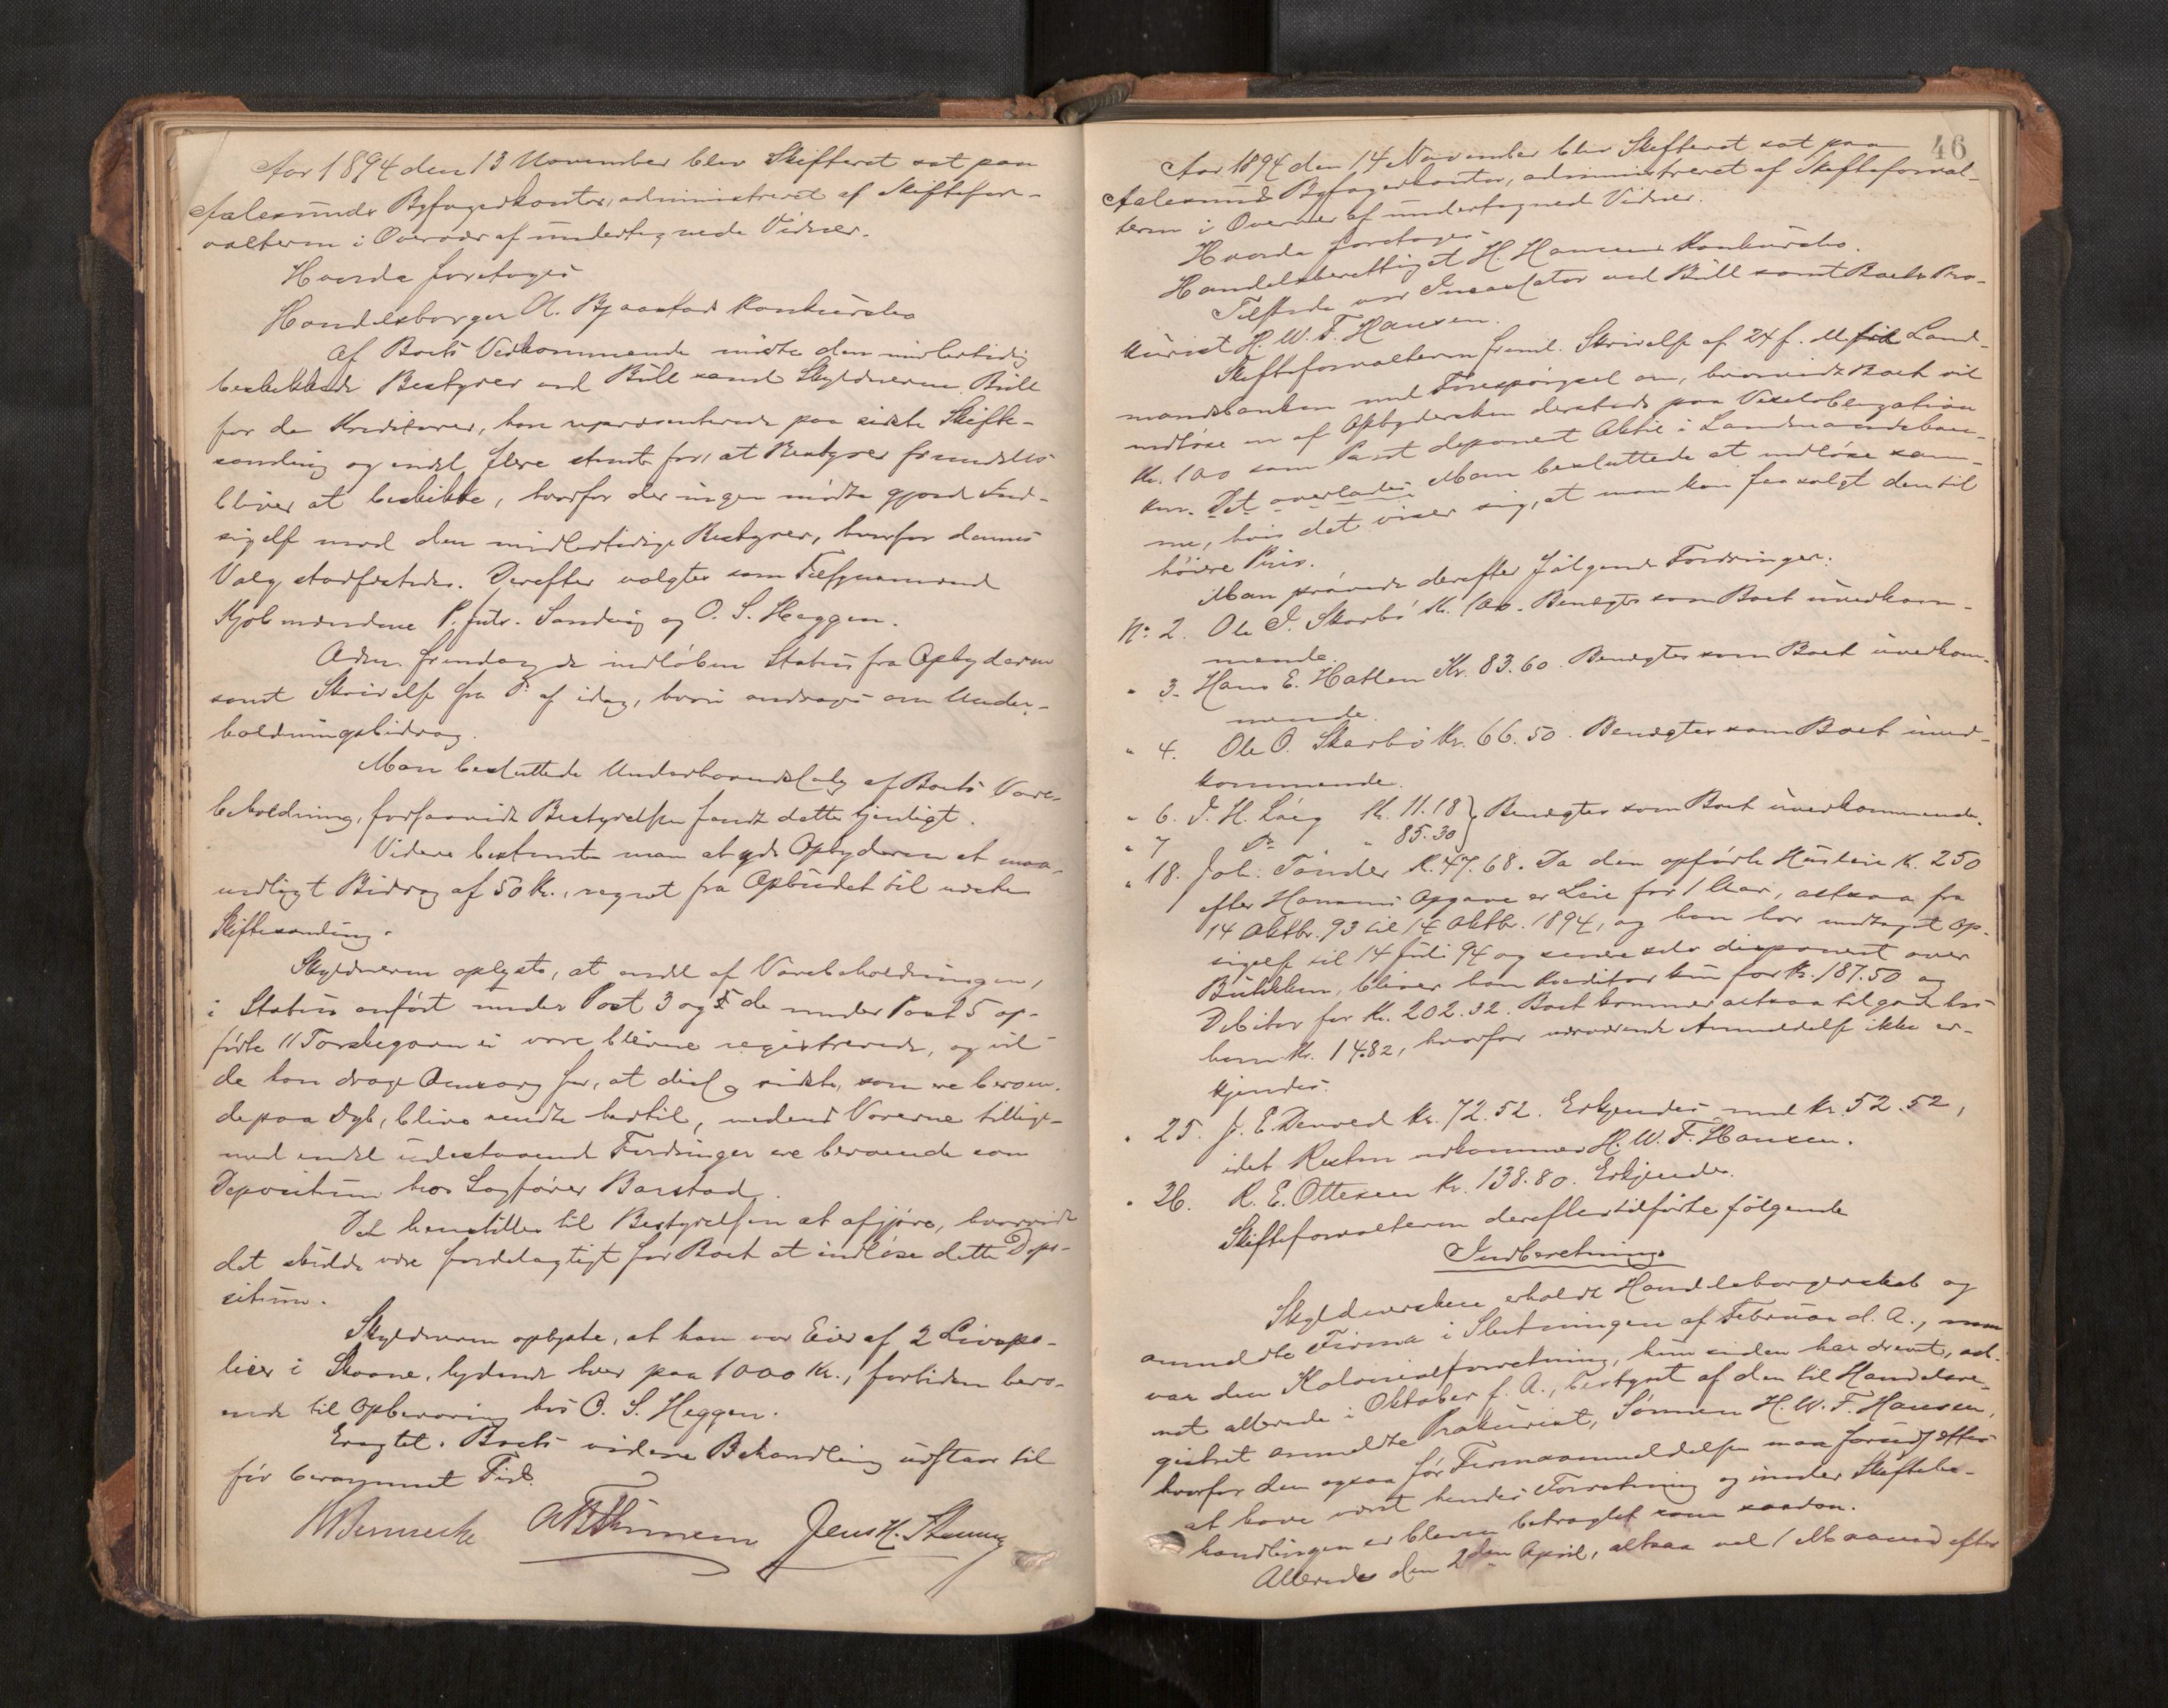 Aar 1894 den 13 November blev Skifteret sat paa
Aalesunds Byfogedkontor, administreret af Skiftefor-
valteren i Overvær af undertegnede Vidner.
Hvorda foretoges
Handelsborger A. Bjaastads Konkursbo
Af Boets Vedkommende mødte den midlertidig
beskikkede Bestyrer ovd Bull samt Skyldneren. Bull
for de Kreditorer, han repræsenterede paa sidste Skifte-
samling og endel flere stemte for, at Bestyrer fremdeles
bliver at beskikke, hvorfor der ingen mødte gjorde Ind-
sigelse mod den midlertidige Bestyrer, hvorfor dennes
Valg stadfæstedes. Derefter valgtes som Tilsynsmænd
Kjøbmændene P. Juls. Sandvig og O. S. Heggen.
Adm. fremlagde indløben Status fra Opbyderen
samt Skrivelse fra Do af idag, hvori andrages om Under-
holdningsbidrag.
Man besluttede Underhaandssalg af Boets Vare-
beholdning, forsaavidt Bestyrelsen fandt dette tjenligt.
Videre bestemte man at yde Opbyderen et maa-
nedligt Bidrag af 50 Kr., regnet fra Opbudet til næste
Skiftesamling.
Skyldneren oplyste, at endel af Varebeholdningen,
i Status anført under Post 3 og 5 de under Post 5 op-
førte 11 Torskegarn ei være blevne registrerede, og vil-
de han drage Omsorg for, at disse sidste, som ere beroen-
de paa Dyb, blive sendte hertil, medens Varerne tillige-
med endel udestaaende Fordringer ere beroende som
Depositum hos Sagfører Barstad.
Det henstilles til Bestyrelsen at afgjøre, hvorvidt
det skulde være fordelagtigt for Boet at indløse dette Depo-
situm.
Skyldneren oplyste, at han var Eier af 2 Livspo-
licer i Skaane, lydende hver paa 1000 Kr., fortiden bero-
ende til Opbevaring hos O. S. Heggen.
Eragtet. Boets videre Behandling udstaar til
før berammet Tid.
Jens K.
46
Aar 1894 den 14 November blev Skifteret sat paa
Aalesund Byfogedkontor, administreret af Skifteforval-
teren i Overvær af undertegnede Vidner.
Hvorda foretoges
Handelsberettiget H. Hansens Konkursbo.
Tilstede var Incassator ovd Bull samt Boets Pro-
kurist H. W. F. Hansen.
Skifteforvalteren freml. Skrivelse af 24 f. M. fra Land-
mandsbanken med Forespørgsel om, hvorvidt Boet vil
indløse en af Opbydersken dersteds paa Vexelobligation
Kr. 100 som Pant deponeret Aktie i Landmandsban-
ken. Det overlades Man besluttede at indløse sam-
me, hvis det viser sig, at man kan faa solgt den til
høiere Pris.
Man prøvede derefter følgende Fordringer:
No 2. Ole I. Skarbø Kr. 100. Benegtes som Boet uvedkom-
mende.
" 3. Hans E. Hatlen Kr. 83.60. Benegtes som Boet uvedkom-
mende.
" 4. Ole O. Skarbø Kr. 66.50. Benegtes som Boet uved-
kommende.
" 6. I. H. Løeg Kr. 11.18 } Benegtes som Boet uvedkommende.
" 7 Do " 85.30
" 18. Joh. Tønder K. 47.68. Da den opførte Husleie K. 250
efter Hansens Opgave er Leie for 1 Aar, altsaa fra
14 Oktbr. 93 til 14 Oktbr. 1894, og han har modtaget Op-
sigelse til 14 Juli 94 og senere selv disponeret over
Butikken, bliver han Kreditor kun for Kr. 187.50 og
Debitor for Kr. 202.32. Boet kommer altsaa tilgode hos
ham Kr. 14.82, hvorfor nærværende Anmeldelse ikke er-
kjendes.
" 25. J. E. Devold Kr. 72.52. Erkjendes med Kr. 52.52,
idet Resten vedkommer H. W. F. Hansen.
" 26. R. E. Ottesen Kr. 138.80. Erkjendes.
Skifteforvalteren derefter tilførte følgende
Indberetning.
Skyldnersken erholdt Handelsborgerskab og
anmeldte Firma i Slutningen af Februar d. A., men
var den Kolonialforretning, hun siden har drevet, aab-
net allerede i Oktober f. A., bestyret af den til Handelsre-
gistret anmeldte Prokurist, Sønnen H. W. F. Hansen,
hvorfor den ogsaa før Firmaanmeldelsen maa forudsættes
at have været hendes Forretning og under Skiftebe-
handlingen er bleven betragtet som saadan.
Allerede den 2den April, altsaa vel 1 Maaned efter